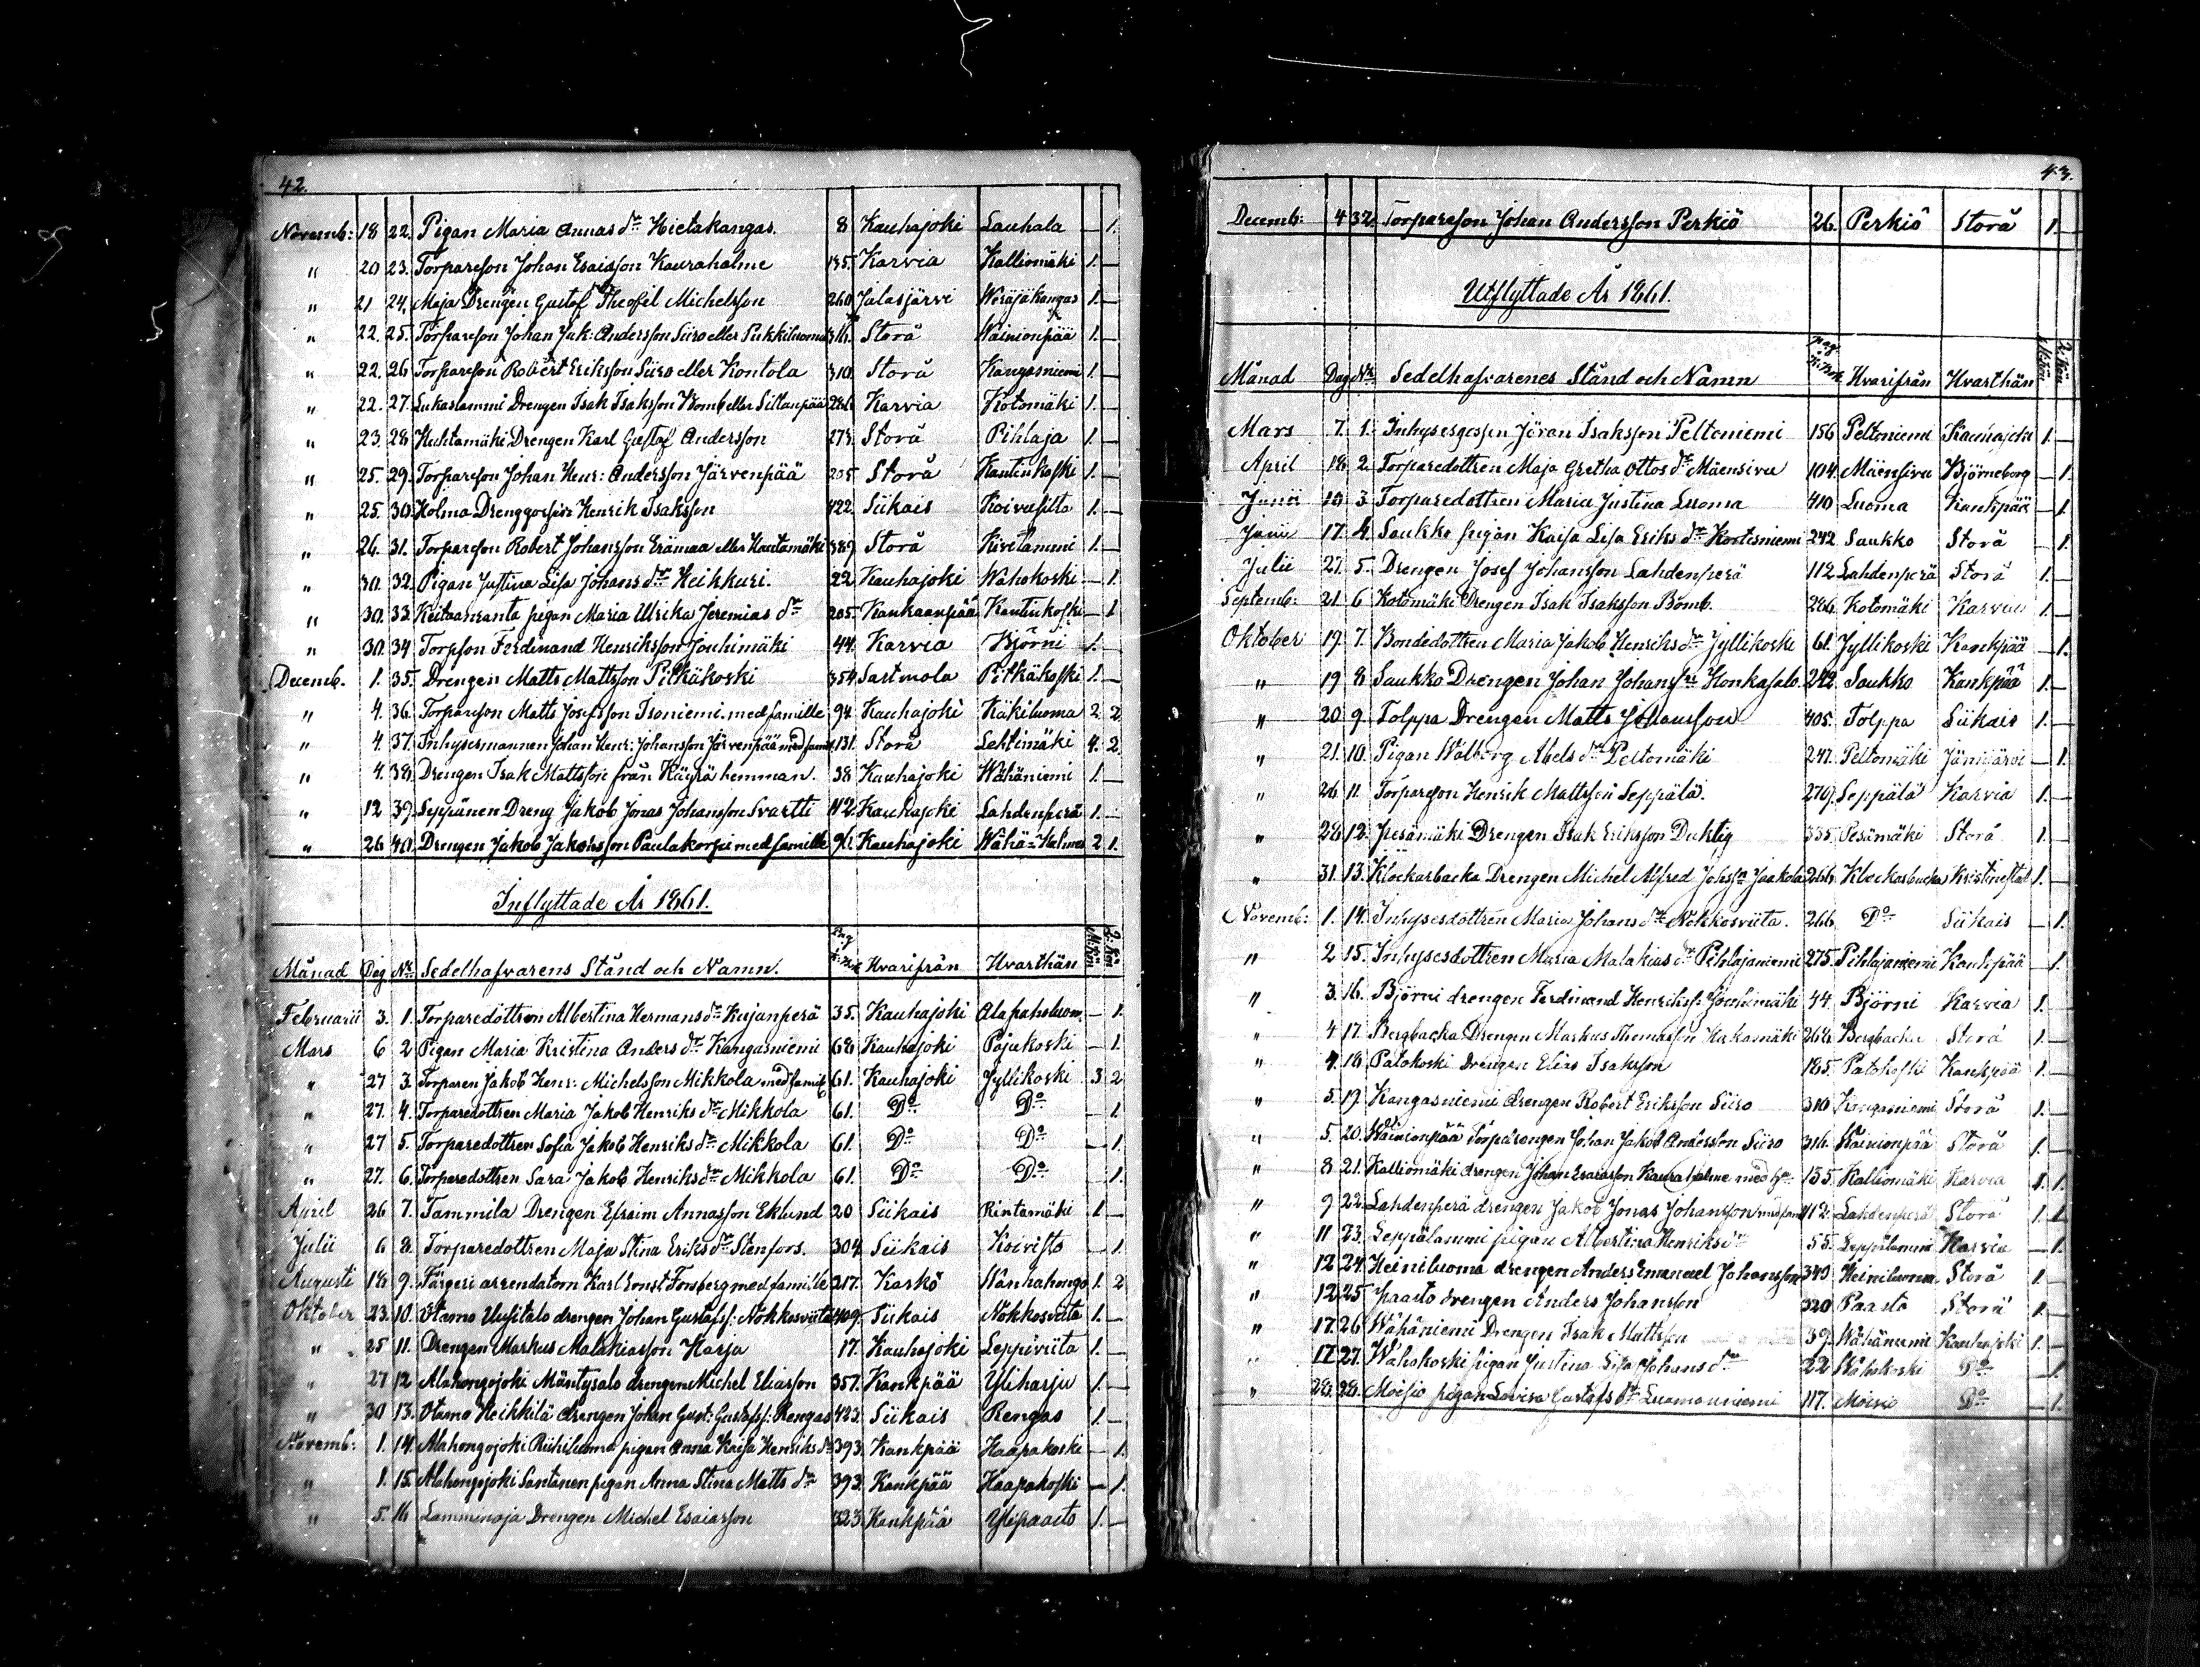 42.
Novemb: 18 22. Pigan Maria Annas dr Hietakangas. 8 Kauhajoki Lauhala — 1.
" 20 23. Torpareson Johan Esaiasson Kauraholme 135. Karvia Kalliomäki 1. —
" 21 24. Maja Drengen Gustof Theofil Michelsson 260 Jalasjärvi Weräjäkangas 1. —
" 22. 25. Torpareson Johan Jak: Andersson Siiro eller Pirkkiluoma 316. Storå Wäinionpää 1. —
" 22. 26 Torpareson Robert Eriksson Siiro eller Kontola 310. Storå Kangasniemi 1. —
" 22. 27. Lukaslammi Drengen Isak Isaksson Bomb eller Sillanpää 286 Karvia Kotomäki 1. —
" 23 28 Huhtamäki Drengen Karl Gustof Andersson 275 Storå Pihlaja 1. —
" 25. 29. Torpareson Johan Henr: Andersson Järvenpää 205 Storå Kantinkoski 1. —
" 25. 30. Holma Drenggossen Henrik Isaksson 422 Siikais Koivusilta 1. —
" 26. 31. Torpareson Robert Johansson Erämaa eller Hautamäki 389 Storå Kivilammi 1. —
" 30. 32. Pigan Justina Lisa Johans dr Heikkuri. 22 Kauhajoki Wähokoski — 1.
" 30. 33. Keitaanranta pigan Maria Ulrika Jeremias dr 205. Kankaanpää Kantinkoski — 1
" 30. 34 Torpson Ferdinand Henriksson Jouhimäki 44. Karvia Björni 1. —
Decemb. 1. 35. Drengen Matts Mattsson Pitkäkoski 354 Sastmola Pitkäkoski 1. —
" 4. 36. Torpareson Matts Josefsson Isoniemi med famille 94 Kauhajoki Käkiluoma 2 2
" 4. 37. Inhysesmannen Johan Henr: Johansson Järvenpää med fam: 131. Storå Lehtimäki 4. 2.
" 4. 38. Drengen Isak Mattsson från Käyrä hemman. 38 Kauhajoki Wähäniemi 1. —
" 12 39. Seppänen Dreng Jakob Jonas Johansson Svartti 112. Kauhajoki Lahdenperä 1. —
" 26 40. Drengen Jakob Jakobsson Paulakorpi med famille 91. Kauhajoki Wähä-Halmes 2 1.
Inflyttade År 1861.
Månad Dag No Sedelhafvarens Stånd och Namn. Pag i K:bok Hvarifrån Hvarthän M:kön Q:kön
Februarii 3. 1. Torparedottren Albertina Hermans dr Kujanperä 35. Kauhajoki Alahaholuom. — 1.
Mars 6 2 Pigan Maria Kristina Anders dr Kangasniemi 68 Kauhajoki Pajukoski — 1.
" 27 3. Torparen Jakob Henr: Michelsson Mikkola med famille 61. Kauhajoki Jyllikoski 3 2
" 27. 4. Torparedottren Maria Jakob Henriks dr Mikkola 61. Do Do — 1
" 27 5. Torparedottren Sofia Jakob Henriks dr Mikkola 61. Do Do — 1.
" 27. 6. Torparedottren Sara Jakob Henriks dr Mikkola 61. Do Do — 1.
April 26 7. Tammila Drengen Efraim Annasson Eklund 20 Siikais Rintamäki 1. —
Julii 6 8. Torparedottren Maja Stina Eriks dr Stenfors. 304 Siikais Koivisto — 1.
Augusti 18 9. Färgeri arrendatorn Karl Ernst Forsberg med famille 217. Kaskö Wanhahongo 1. 2
Oktober 23. 10. Otamo Uusitalo drengen Johan Gustafss: Nokkosviita 409. Siikais Nokkosviita 1. —
" 25 11. Drengen Markus Malakiasson Harja 17. Kauhajoki Leppiviita 1. —
" 27 12 Alahongojoki Mäntysalo drengen Michel Eliasson 357. Kankpää Yliharju 1. —
" 30 13. Otamo Heikkilä drengen Johan Gust: Gustafss: Rengas 423. Siikais Rengas 1. —
Novemb: 1. 14. Alahongojoki Riihiluoma pigan Anna Kaisa Henriks dr 393. Kankpää Haapakoski — 1.
" 1. 15. Alahongojoki Santanen pigan Anna Stina Matts dr 393. Kankpää Haapakoski — 1.
" 5. 16 Lamminoja Drengen Michel Esaiasson 323. Kankpää Ylipaasto 1. —
43.
Decemb: 4 32. Torpareson Johan Andersson Perkiö 26. Perkiö Storå 1. —
Utflyttade År 1861.
Månad Dag No Sedelhafvarenes Stånd och Namn Pag i K:bok Hvarifrån Hvarthän M:kön Q:kön
Mars 7. 1. Inhysesgossen Jöran Isaksson Peltoniemi 156 Peltoniemi Kauhajoki 1. —
April 18 2. Torparedottren Maja Gretha Ottos dr Mäensivu 104. Mäensivu Björneborg — 1.
Junii 10 3. Torparedottren Maria Justina Luoma 410 Luoma Kankpää — 1.
Junii 17. 4. Saukko pigan Kaisa Lisa Eriks dr Kortesniemi 242 Saukko Storå — 1.
Julii 27. 5. Drengen Josef Johansson Lahdenperä 112 Lahdenperä Storå 1. —
Septemb: 21 6 Kotomäki Drengen Isak Isaksson Bomb. 286. Kotomäki Karvia 1. —
Oktober 19. 7. Bondedottren Maria Jakob Henriks dr Jyllikoski 61. Jyllikoski Kankpää — 1.
" 19 8 Saukko Drengen Johan Johansson Honkasalo 242. Saukko Kankpää 1. —
" 20 9. Tolppa Drengen Matts Johansson 405. Tolppa Siikais 1. —
" 21. 10. Pigan Walborg Abels dr Peltomäki 247. Peltomäki Jämijärvi — 1.
" 26 11. Torpareson Henrik Mattsson Seppälä. 279. Seppälä Karvia 1. —
" 28 12. Pesämäki Drengen Isak Eriksson Duktig 335. Pesämäki Storå 1. —
" 31. 13. Klockarbacka Drengen Michel Alfred Johssn Jaakola 266. Klockarbacka Kristinestad 1. —
Novemb: 1. 14. Inhysesdottren Maria Johans dr Nokkosviita. 266. Do Siikais — 1.
" 2 15. Inhysesdottren Maria Malakias dr Pihlajaniemi 275. Pihlajaniemi Kankpää — 1.
" 3. 16. Björni drengen Ferdinand Henrikss: Jouhimäki 44. Björni Karvia 1. —
" 4 17. Bergbacka Drengen Markus Thomasson Kakamäki 268. Bergbacka Storå 1. —
" 4. 18 Patokoski Drengen Elias Isaksson 185. Patokoski Kankpää 1. —
" 5. 19 Kangasniemi drengen Robert Eriksson Siiro 310 Kangasniemi Storå 1. —
" 5. 20. Wäinionpää Torpdrengen Johan Jakob Andersson Siiro 316. Wäinionpää Storå 1. —
" 8 21. Kalliomäki drengen Johan Esaiasson Kauraholme med h:u 135. Kalliomäki Karvia 1. 1.
" 9 22. Lahdenperä drengen Jakob Jonas Johansson med fam 112. Lahdenperä Storå 1. 1.
" 11 23. Leppälammi pigan Albertina Henriks dr 55. Leppälammi Karvia — 1.
" 12 24. Heiniluoma drengen Anders Emanuel Johansson 340 Heiniluoma Storå 1. —
" 12 25. Paasto drengen Anders Johansson 320 Paasto Storå 1. —
" 17. 26 Wähäniemi Drengen Isak Mattsson 39. Wähäniemi Kauhajoki 1. —
" 17 27. Wähokoski pigan Justina Lisa Johans dr 22 Wähokoski Do — 1.
" 28. 28. Moisio pigan Lovisa Gustafs dr Luomanniemi 117. Moisio Do — 1.